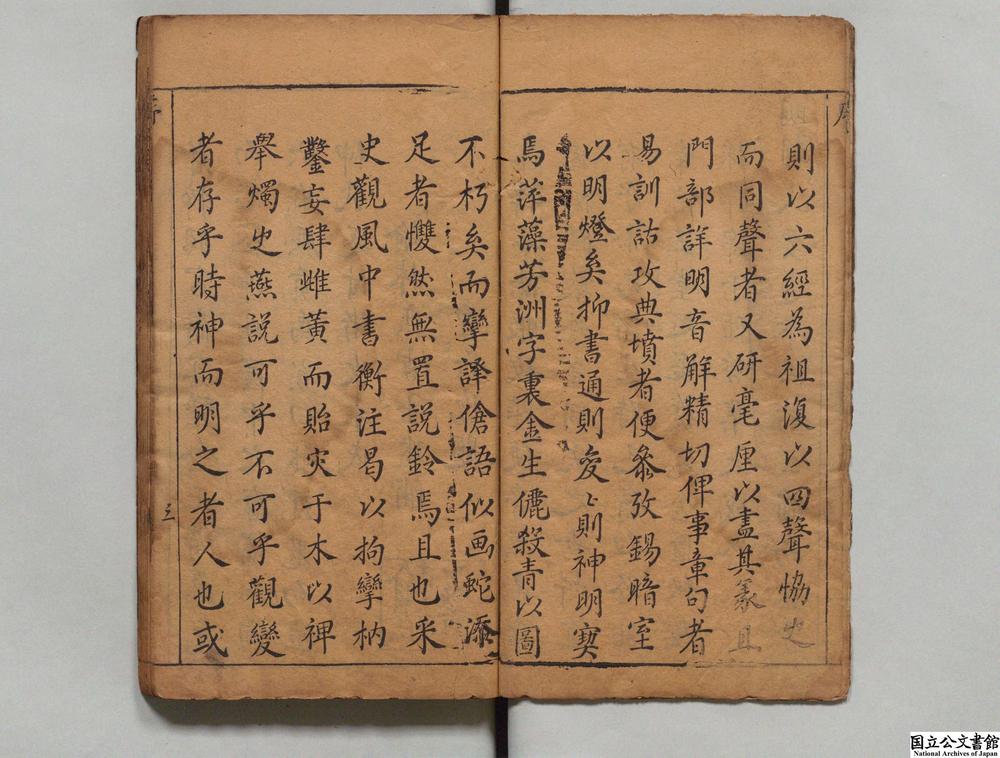 則以六經為祖復以四聲恊㞢
而同聲者又研毫厘以盡其㒸且
門部詳明音解精切俾事章句者
易訓詁攻典墳者便叅攷錫暗室
以明燈矣抑書通則変〻則神明寞
焉萍藻芳洲字裏金生儷殺青以圖
不朽矣而孿譯傖語似画蛇添
足者戄然無置說鈴焉且也采
史觀風中書衡注曷以拘孿枘
鑿妄肆雌黃而貽灾于木以裨
舉燭㞢燕說可乎不可乎觀變
者存乎時神而明之者人也或
序
序
三
国立公文書館
National Archives of Japan